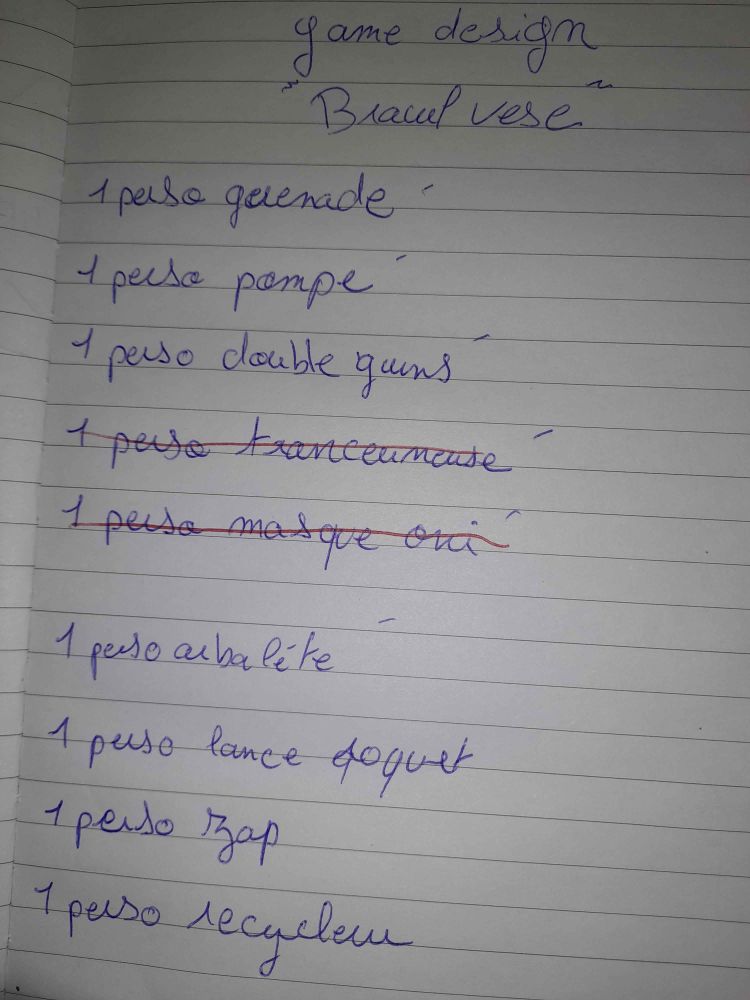 game design
"Brawl verse"
1 perso grenade
1 perso pompe
1 perso double guns
1 perso tronceuneuse
1 perso masque oni
1 perso arbalète
1 perso lance roquet
1 perso zap
1 perso recycleur